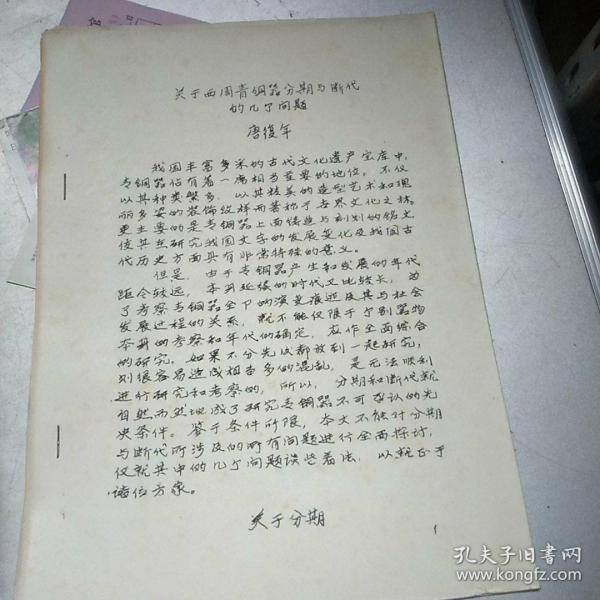 关于西周青铜器分期与断代
的几个问题
唐復年
我国丰富多采的古代文化遗产宝库中,
青铜器占有着一席相当重要的地位。不仅
以其种类繁多,以其精美的造型艺术和瑰
丽多姿的装饰纹样而著称于世界文化之林。
更主要的是青铜器上面铸造与刻划的铭文
使其在研究我国文字的发展变化及我国古
代历史方面具有非常特殊的意义。
但是,由于青铜器产生和发展的年代
距今较远,本身延续的时代又比较长,为
了考察青铜器全部的演变痕迹及其与社会
发展过程的关系,就不能仅限于个别器物
本身的考察和年代的确定,应作全面综合
的研究。如果不分先后都放到一起研究,
则很容易造成相当多的混乱,是无法顺利
进行研究和考察的,所以,分期和断代就
自然而然地成了研究青铜器不可否认的先
决条件。鉴于条件所限,本文不能对分期
与断代所涉及的所有问题进行全面探讨,
仅就其中的几个问题谈些看法,以就正于
诸位方家。
关于分期
1
孔夫子旧书网
www.kongfz.com